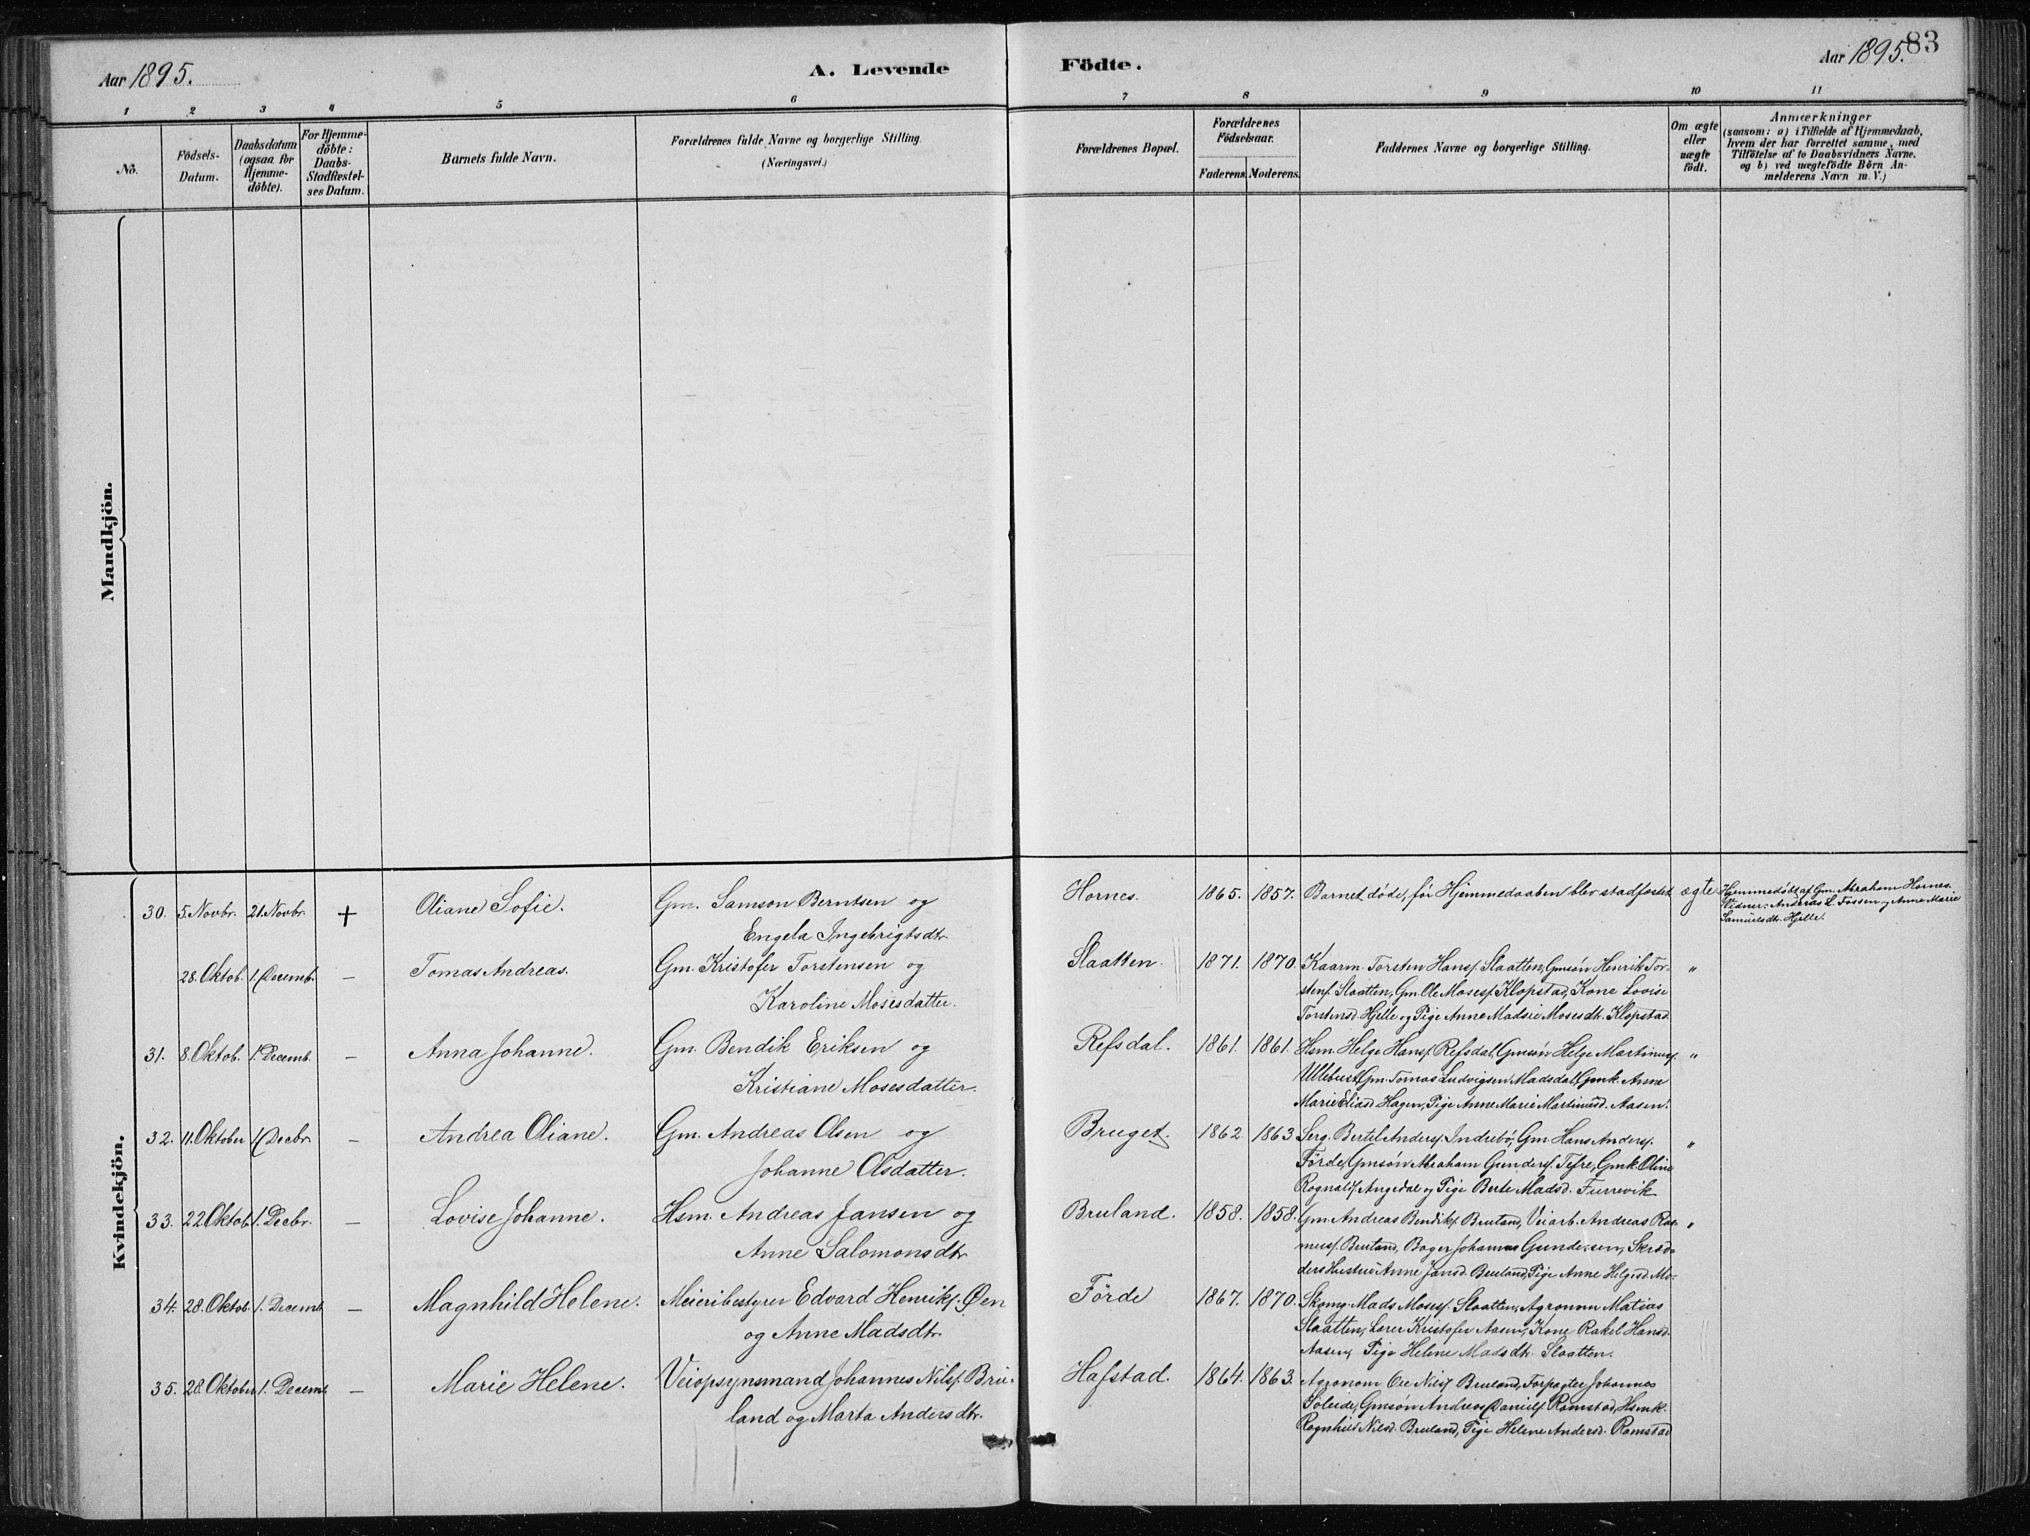 83
Aar 1895.
A. Levende Födte.
Aar 1895.
1 2 3 4 5 6 7 8 9 10 11
No.
Födsels-Datum.
Daabsdatum (ogsaa for Hjemme-döbte).
For Hjemme-döbte: Daabs-Stadfæstel-ses Datum.
Barnets fulde Navn.
Forældrenes fulde Navne og borgerlige Stilling.
(Næringsvei.)
Forældrenes Bopæl.
Forældrenes Födselsaar.
Faderens. Moderens.
Faddernes Navne og borgerlige Stilling.
Om ægte eller uægte födt.
Anmærkninger
(saasom: a) i Tilfælde af Hjemmedaab,
hvem der har forrettet samme, med
Tilföielse af to Daabsvidners Navne,
og b) ved uægtefödte Börn An-
melderens Navn m. V.)
Mandkjön.
Kvindekjön.
30. 5. Novbr. 21. Novbr. + Oliane Sofie. Gm. Samson Berntsen og Hornes. 1865. 1857. Barnet döde, för Hjemmedaaben blev stadfæstet ægte Hjemmedöbt af Gm. Abraham Hornes.
Vidner: Andreas L. Fossen og Anne Marie
Engela Ingebrigtsdtr. Samuelsdtr. Hjelle.
28. Oktob. 1. Decemb. – Tomas Andreas. Gm. Kristofer Torstensen og Slaatten. 1871. 1870. Kaarm. Torsten Hansf. Slaatten, Gmsön Henrik Tor- "
Karoline Mosesdatter. stenf. Slaatten, Gm. Ole Mosesf. Klopstad, Kone Lovise
Torstensd. Hjelle og Pige Anne Madsie Mosesdtr. Klopstad.
31. 8. Oktob. 1. Decemb. – Anna Johanne. Gm. Bendik Eriksen og Refsdal. 1861. 1861. Hsm. Helge Hansf. Refsdal, Gmsön Helge Martinusf. "
Kristiane Mosesdatter. Ullebust, Gm. Tomas Ludvigsen Madsdal, Gmk. Anne
Marie Eliasd. Hagen, Pige Anne Marie Martinusd. Aasen.
32. 11. Oktober 1. Decbr. – Andrea Oliane. Gm. Andreas Olsen og Bruget. 1862. 1863. Serg. Bertel Andersf. Indrebö, Gm. Hans Andersf. "
Johanne Olsdatter. Förde, Gmsön Abraham Gundersf. Tefre, Gmk. Oline
Angedal og Pige Berte Madsd. Furrevik
33. 22 Oktob. 1. Decbr. – Lovise Johanne. Hsm. Andreas Jansen og Bruland. 1858. 1858. Gm. Andreas Bendikf. Bruland, Veiarb. Andreas Ras- "
Anne Salomonsdtr. musf. Bruland, Bager Johannes Gundersen, Skræd-
ders Hustru Anne Jansd. Bruland, Pige Anne Helgesd. Mo-
34. 28. Oktob. 1. Decemb. – Magnhild Helene. Meieribestyrer Edvard Henrikf. Øen Förde 1867. 1870. Skomg. Mads Mosesf. Slaatten, Agronom Matias
og Anne Madsdtr. Slaatten, Lærer Kristofer Aasen, Kone Rakel Hansd.
Aasen, Pige Helene Madsdtr. Slaatten.
35. 28. Oktober 1. Decemb. – Marie Helene. Veiopsynsmand Johannes Nilsf. Bru- Hafstad. 1864. 1863. Agronom Ole Nilsf. Bruland, Forpagter Johannes
land og Marta Andersdtr. Soleide, Gmsön Andreas Danielf. Ramstad, Hsmk.
Ragnhild Nilsd. Bruland, Pige Helene Andersd. Ramstad